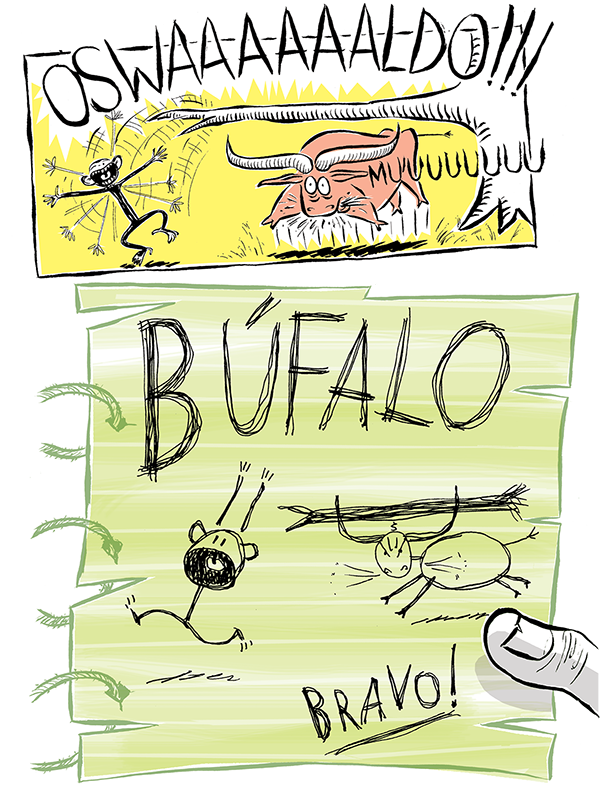 OSWAAAAAALDO!!!
MUUUUUUU
BÚFALO
BRAVO!